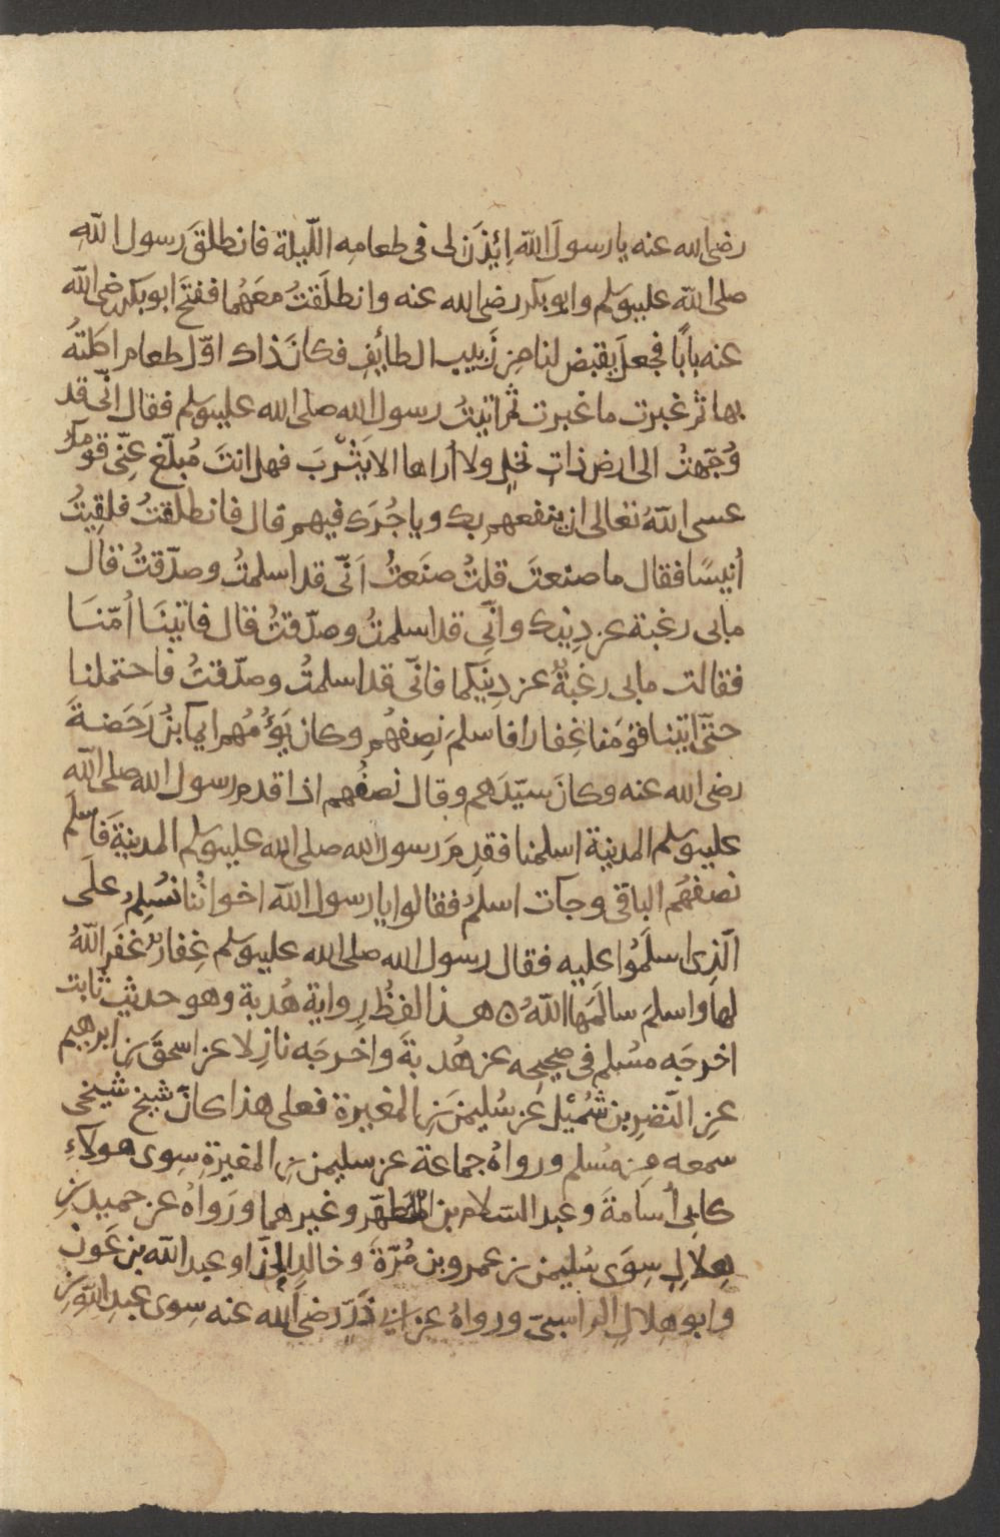 رضى الله عنه يا رسولَ الله اِيْذَن لى فى طعامِه اللّيلة فانطلقَ رسول اللّٰهِ
صلى اللّٰه عليه وسلم وابو بكر رضى الله عنه وانطلَقتُ معَهُما ففتَحَ ابو بكر رضى اللّٰه
عنه بابًا فجعلَ يقبض لنا مِن زَبيب الطايِفِ فكانَ ذاك اوّل طعام اكلتُه
بها ثم غبرت ما غبرت ثم اتيتُ رسول الله صلى الله عليه وسلم فقال انّى قد
وُجّهتُ الى ارض ذاتِ نخلٍ ولا اُراها الا يَثْرِبَ فهل انتَ مُبلّغ عنّى قومك
عسى اللّٰهُ تعالى ان ينفعهم بك وياجُرَك فيهم قال فانطلقتُ فلقِيتُ
اُنيسًا فقال ما صنعتَ قلتُ صنَعتُ اَنّى قد اسلمتُ وصدّقتُ قال
مابى رغبة عن دِينِك وانّى قد اسلمتُ وصدّقتُ قال فاتينَا اُمّنَا
فقالت مابى رغبةٌ عن دِينِكما فانّى قد اسلمتُ وصدّقتُ فاحتملنا
حتّى اتينا قومَنا غِفارا فاسلمَ نِصفهُم وكان يَؤُمُهم ايما بنُ رَحَضةَ
رضى الله عنه وكانَ سيّدَهم وقال نصفُهم اذا قدم رسول الله صلى اللّٰه
عليه وسلم المدينة اسلمنا فقدِمَ رسول الله صلى الله عليه وسلم المدينةَ فاسلَم
نصفهُم الباقى وجآت اسلمُ فقالوا يا رسول اللّٰه اخوانُنا نُسْلِمُ علَى
الّذِى اسلَمُوا عليه فقال رسول الله صلى الله عليه وسلم غِفارٌ غفَر اللّٰهُ
لها واسلمَ سالَمَها اللّٰهُ ۞ هذا لفظُ رِواية هُدبة وهو حديث ثابت
اخرجَه مسُلم فى صحيحِه عن هُدبةَ واخرجَه نازِلا عن اسحقَ بن ابرهيم
عنِ النّضرِ بن شُمَيْل عَن سُليمنَ بنِ المغيرة فعلى هذا كانّ شيخ شيخى
سمعه مِن مُسلم ورواهُ جماعة عن سليمن بنِ المغيرةِ سِوى هولآءِ
كابى اُسامةَ وعبد السّلام بن المُطهّر وغيرهما ورَواهُ عن حميد بنِ
هِلالٍ سِوَى سُليمن بن عمرو بن مُرّةَ وخالدٍ الحذّا وعبد اللّٰه بن عَون
وابو هِلالٍ الراسبىّ ورواهُ عن ابى ذَرّ رضى الله عنه سِوى عبدِ اللّٰه بنِ